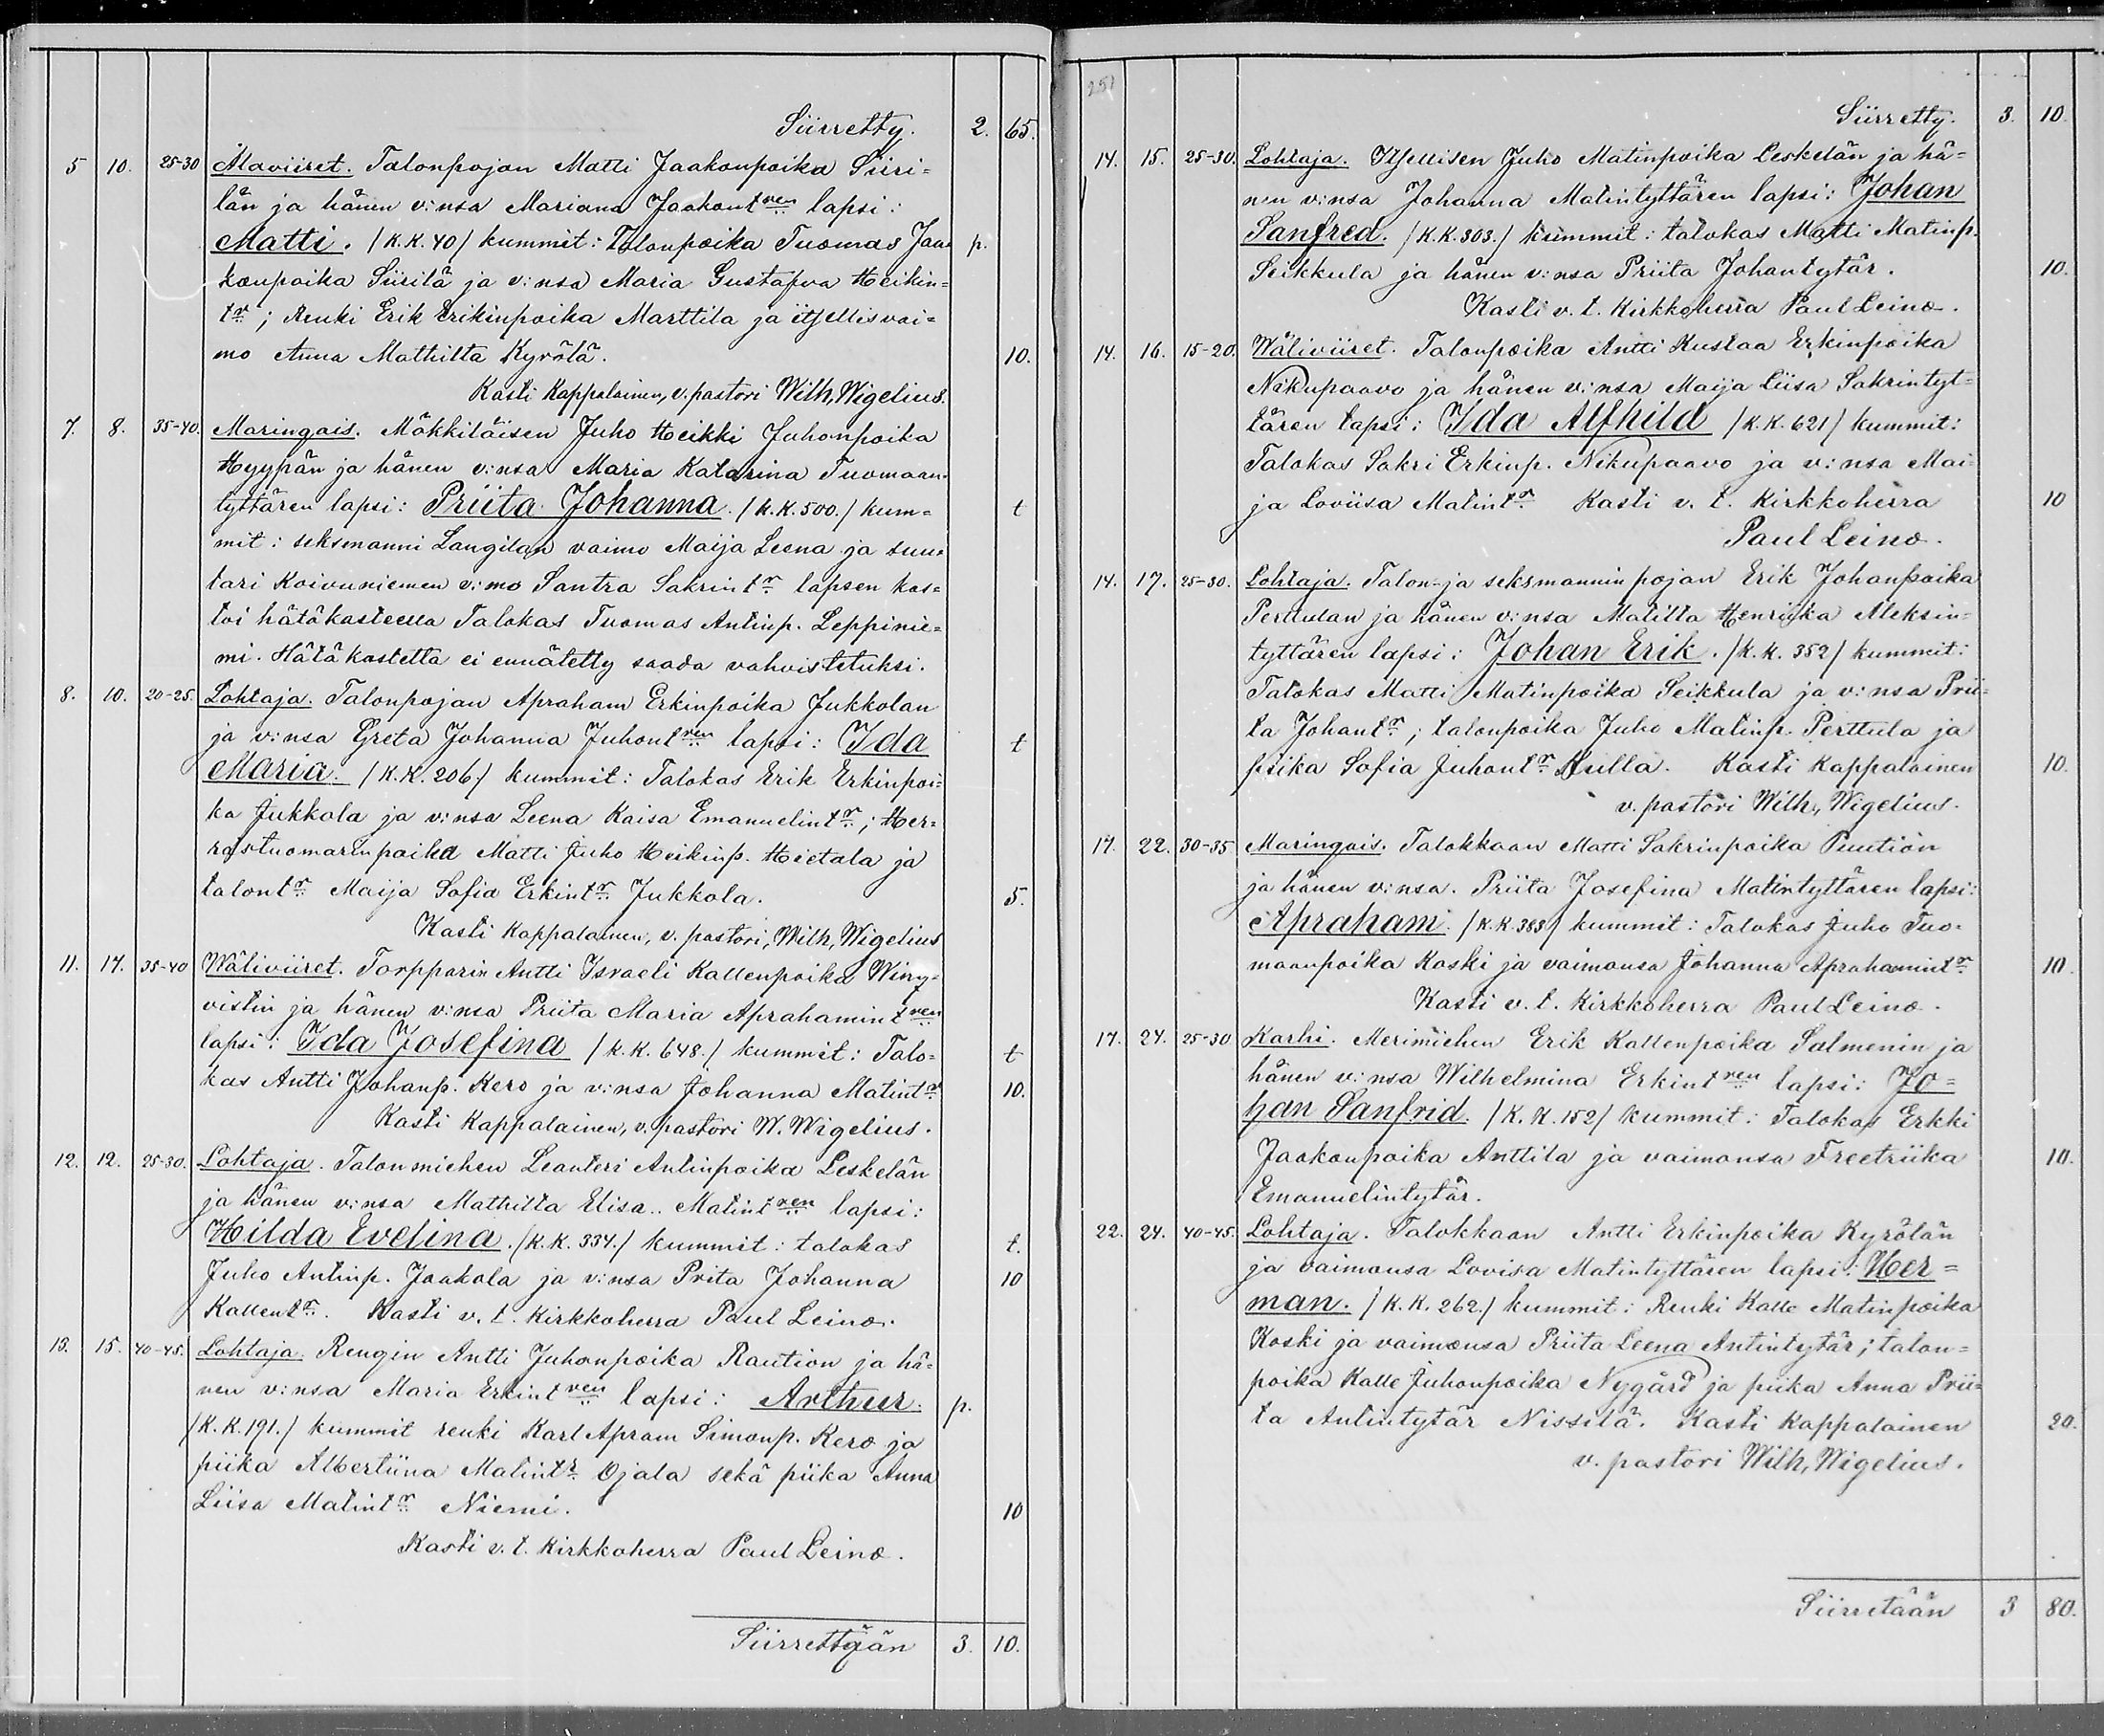 Siirretty. 2. 65.
5 10. 25-30 Alaviiret. Talonpojan Matti Jaakonpoika Siiri=
län ja hänen v:nsa Mariana Jaakont:ren lapsi:
Matti. /K.K. 40/ kummit: Talonpoika Tuomas Jaa= p.
konpoika Siirilä ja v:nsa Maria Gustafva Heikin=
t:r; Renki Erik Erikinpoika Marttila ja itsellisvai=
mo Anna Mathilta Kyrölä. 10.
Kasti Kappalainen, v. pastori Wilh, Wigelius.
7. 8. 35-40. Maringais. Mökkiläisen Juho Heikki Juhonpoika
Hyypän ja hänen v:nsa Maria Katarina Tuomaan=
tyttären lapsi: Priita Johanna. /K.K. 500./ kum= t
mit: seksmanni Langilan vaimo Maija Leena ja suu=
tari Koivuniemen v:mo Santra Sakrint:r lapsen kas=
toi hätäkasteella Talokas Tuomas Antinp. Leppinie=
mi. Hätäkastetta ei ennätetty saada vahvistetuksi.
8. 10. 20-25. Lohtaja. Talonpojan Apraham Erkinpoika Jukkolan
ja v:nsa Greta Johanna Juhont:ren lapsi: Ida t
Maria. /K.K. 206./ kummit: Talokas Erik Erkinpoi=
ka Jukkola ja v:nsa Leena Kaisa Emanuelint:r; Her=
rastuomarinpoika Matti Juho Heikinp. Hietala ja
talont:r Maija Sofia Erkint:r Jukkola. 5.
Kasti Kappalainen, v. pastori, Wilh, Wigelius
11. 17. 35-40 Wäliviiret. Torpparin Antti Israeli Kallenpoika Winq=
vistin ja hänen v:nsa Priita Maria Aprahamint:ren
lapsi: Ida Josefina /K.K. 648./ kummit: Talo= t
kas Antti Johanp. Kero ja v:nsa Johanna Matint:r 10.
Kasti Kappalainen, v. pastori W. Wigelius.
12. 12. 25-30. Lohtaja. Talonmiehen Leanteri Antinpoika Leskelän
ja hänen v:nsa Mathilta Elisa.. Matint:ren lapsi:
Hilda Evelina. /K.K. 334./ kummit: talokas t.
Juho Antinp. Jaakola ja v:nsa Prita Johanna 10
Kallent:r. Kasti v. t. Kirkkoherra Paul Leino.
13. 15. 40-45. Lohtaja. Rengin Antti Juhonpoika Raution ja hä=
nen v:nsa Maria Erkint:ren lapsi: Arthur. p.
/K.K. 191./ kummit renki Karl Apram Simonp. Kero ja
piika Albertiina Matint:r Ojala sekä piika Anna
Liisa Matint:r Niemi. 10
Kasti v. t. Kirkkoherra Paul Leino.
Siirrettään 3. 10.
251
Siirretty. 3. 10.
14. 15. 25-30. Lohtaja. Itsellisen Juho Matinpoika Leskelän ja hä=
nen v:nsa Johanna Matintyttären lapsi: Johan
Sanfred. /K.K. 303./ kummit: talokas Matti Matinp.
Seikkula ja hänen v:nsa Priita Johantytär. 10.
Kasti v. t. Kirkkoherra Paul Leino.
14. 16. 15-20. Wäliviiret. Talonpoika Antti Kustaa Erkinpoika
Nikupaavo ja hänen v:nsa Maija Liisa Sakrintyt=
tären lapsi: Ida Alfhild /K.K. 621/ kummit:
Talokas Sakri Erkinp. Nikupaavo ja v:nsa Mai=
ja Loviisa Matint:r Kasti v. t. Kirkkoherra 10
Paul Leino.
14. 17. 25-30. Lohtaja. Talon- ja seksmannin pojan Erik Johanpoika
Perttulan ja hänen v:nsa Matilta Henriika Aleksin=
tyttären lapsi: Johan Erik. /K.K. 352/ kummit:
Talokas Matti Matinpoika Seikkula ja v:nsa Prii=
ta Johant:r; talonpoika Juho Matinp. Perttula ja
piika Sofia Juhont:r Hulla. Kasti Kappalainen 10.
v. pastori Wilh, Wigelius.
17. 22. 30-35 Maringais. Talokkaan Matti Sakrinpoika Puution
ja hänen v:nsa. Priita Josefina Matintyttären lapsi:
Apraham. /K.K. 383/ kummit: Talokas Juho Tuo=
maanpoika Koski ja vaimonsa Johanna Aprahamint:r 10.
Kasti v. t. Kirkkoherra Paul Leino.
17. 24. 25-30 Karhi. Merimiehen Erik Kallenpoika Salmenin ja
hänen v:nsa Wilhelmina Erkint:ren lapsi: Jo=
han Sanfrid. /K.K. 152/ kummit: Talokas Erkki
Jaakonpoika Anttila ja vaimonsa Freetriika 10.
Emanuelintytär.
22. 24. 40-45. Lohtaja. Talokkaan Antti Erkinpoika Kyrölän
ja vaimonsa Lovisa Matintyttären lapsi: Her=
man. /K.K. 262./ kummit: Renki Kalle Matinpoika
Koski ja vaimonsa Priita Leena Antintytär; talon=
poika Kalle Juhonpoika Nygård ja piika Anna Prii=
ta Antintytär Nissilä. Kasti Kappalainen 20.
v. pastori Wilh, Wigelius.
Siirretään 3 80.